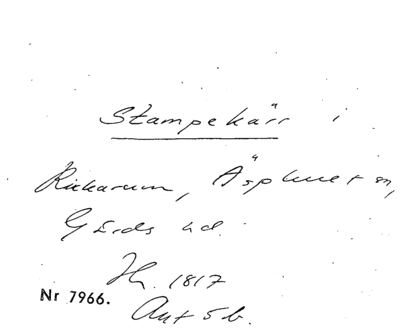 Stampekärr i
Rickarum, Äsphult sn,
Gärds hd.
Jh. 1817
Nr 7966.
Akt 5 b.